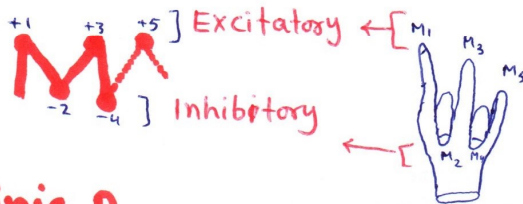 +1 +3 +5 ] Excitatory ← [ M1
M3
M5
-2 -4 ] Inhibitory ← [ M2 M4